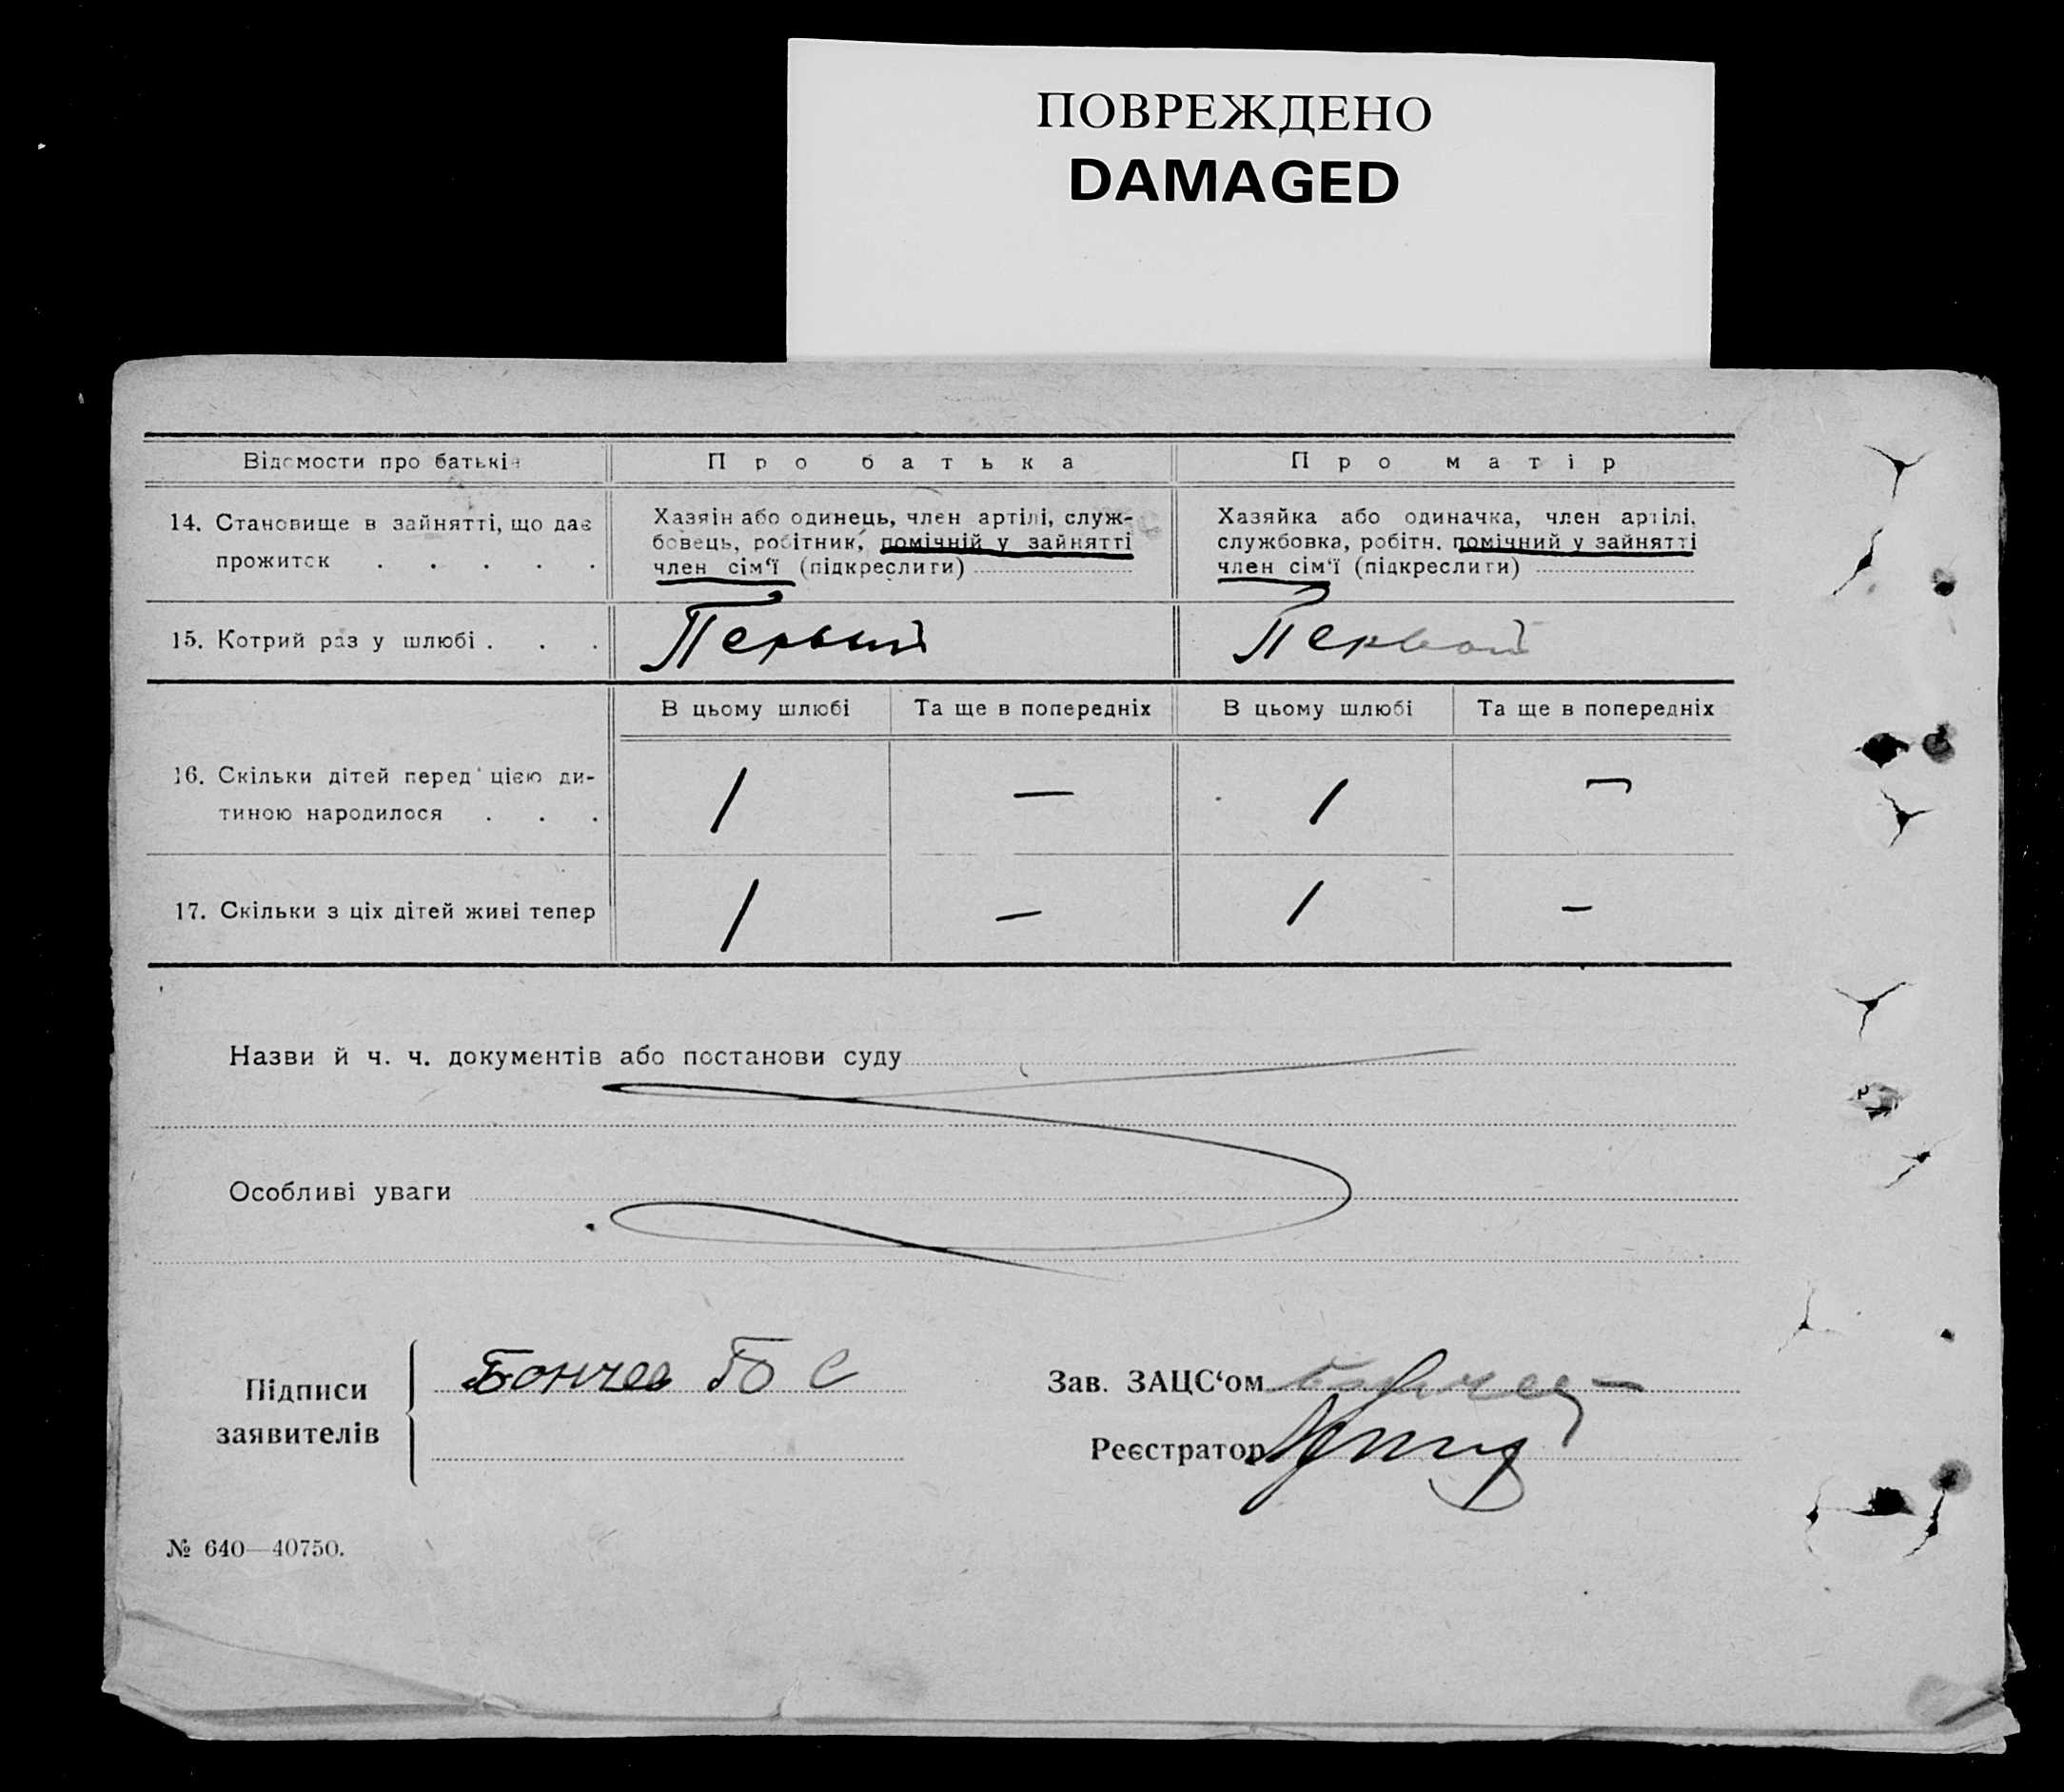 ПОВРЕЖДЕНО
DAMAGED
Відомости про батьків
Про батька
Про матір
14. Становище в зайнятті, що дає
прожиток . . . . .
Хазяін або одинець, член артілі, служ-
бовець, робітник, помічній у зайнятті
член сім‘ї (підкреслити)
Хазяйка або одиначка, член артілі,
службовка, робітн. помічний у зайнятті
член сім‘ї (підкреслити)
15. Котрий раз у шлюбі . . .
Первый
Первой
В цьому шлюбі
Та ще в попередніх
В цьому шлюбі
Та ще в попередніх
16. Скільки дітей перед цією ди-
тиною народилося . . .
1
—
1
—
17. Скільки з ціх дітей живі тепер
1
—
1
—
Назви й ч. ч. документів або постанови суду
Особливі уваги
Підписи
заявителів
Бончев С
Зав. ЗАЦС‘ом
Реєстратор
№ 640—40750.